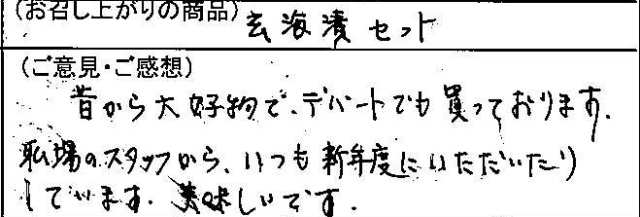 (お召し上がりの商品) 玄海漬セット
(ご意見・ご感想)
昔から大好物で、デパートでも買っております。
職場のスタッフから、いつも新年度にいただいたり
しています。美味しいです。